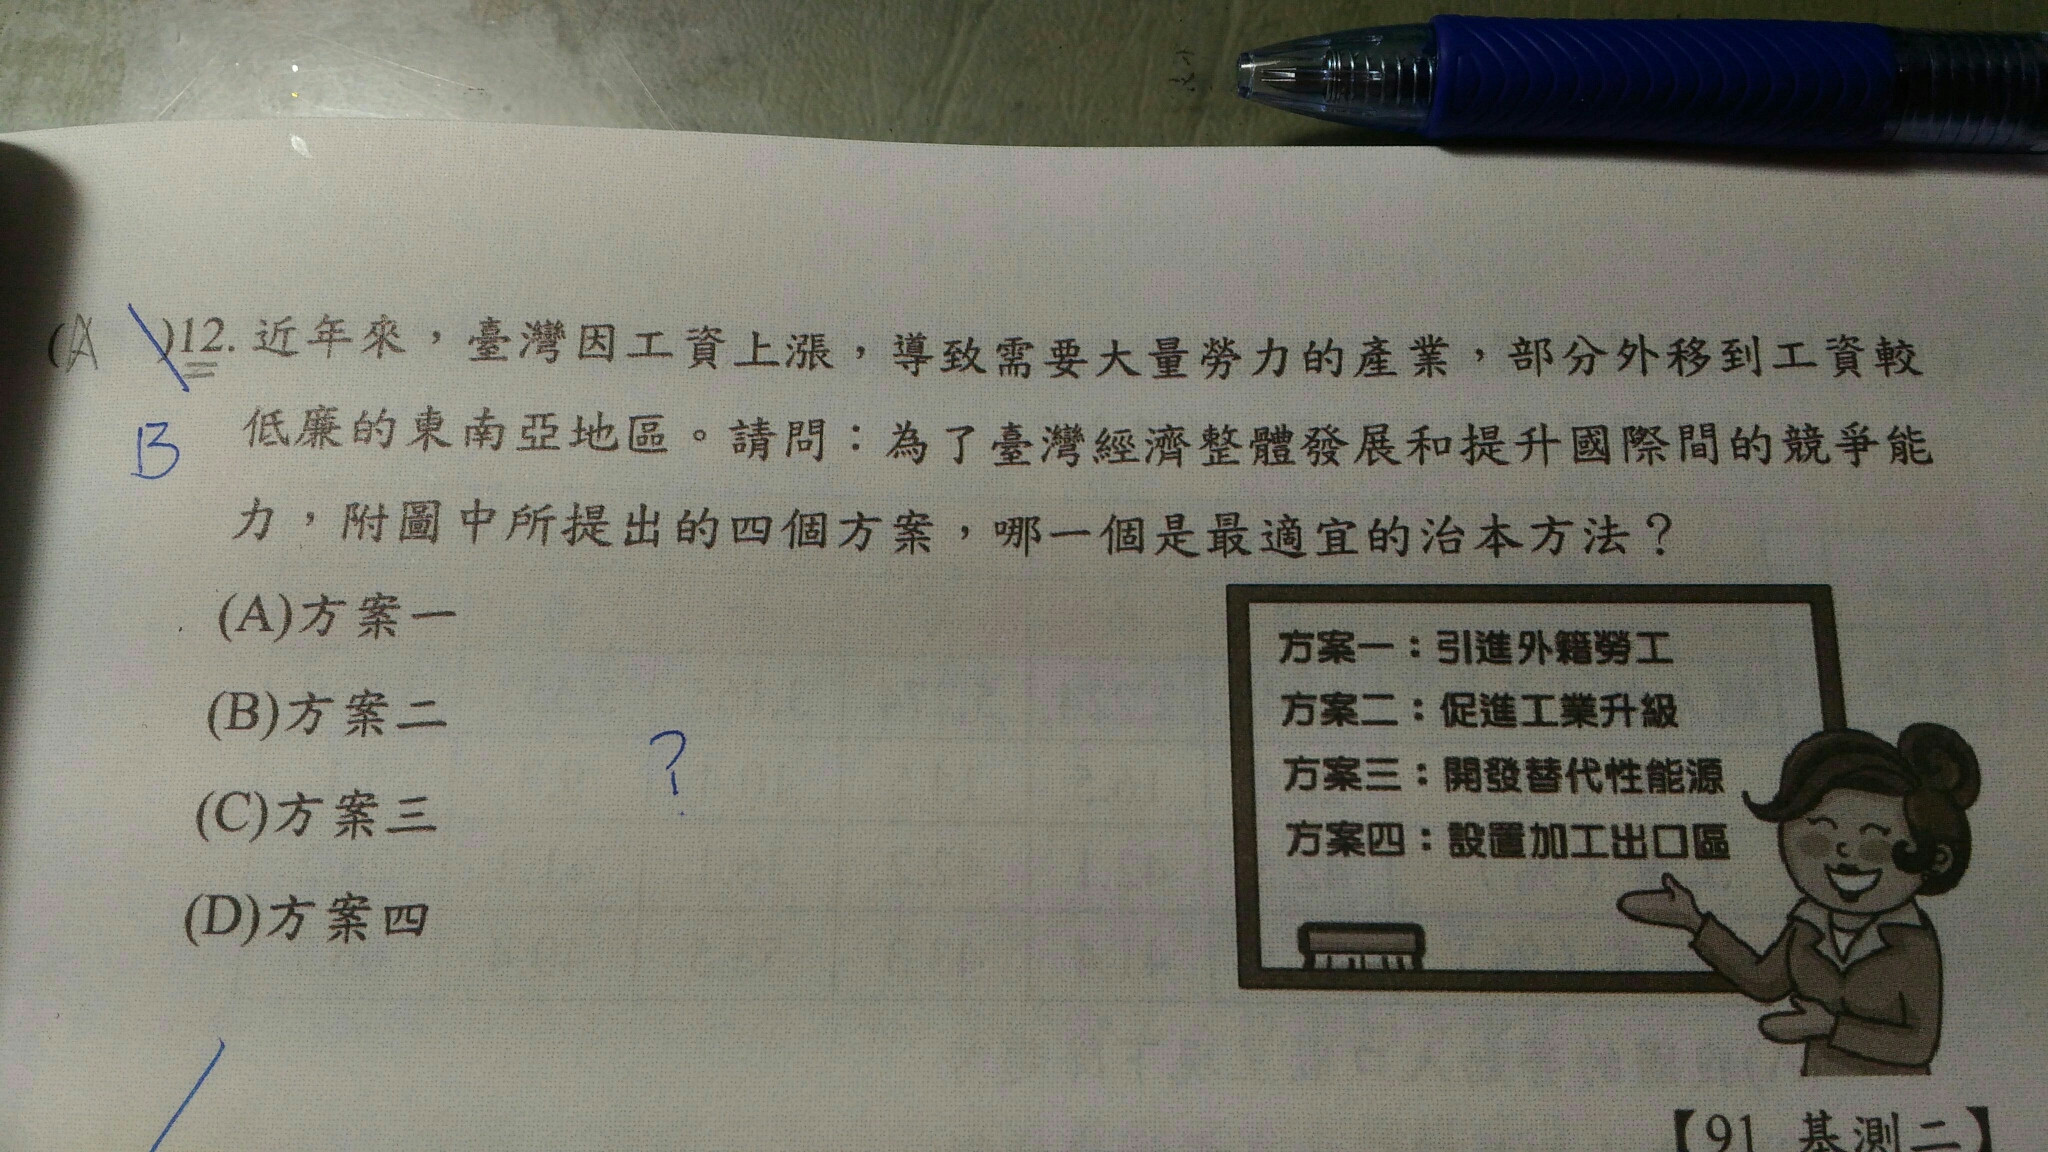 (A )12. 近年來，臺灣因工資上漲，導致需要大量勞力的產業，部分外移到工資較
B 低廉的東南亞地區。請問：為了臺灣經濟整體發展和提升國際間的競爭能
力，附圖中所提出的四個方案，哪一個是最適宜的治本方法？
(A)方案一
(B)方案二
(C)方案三
(D)方案四
?
方案一：引進外籍勞工
方案二：促進工業升級
方案三：開發替代性能源
方案四：設置加工出口區
【91 基測二】